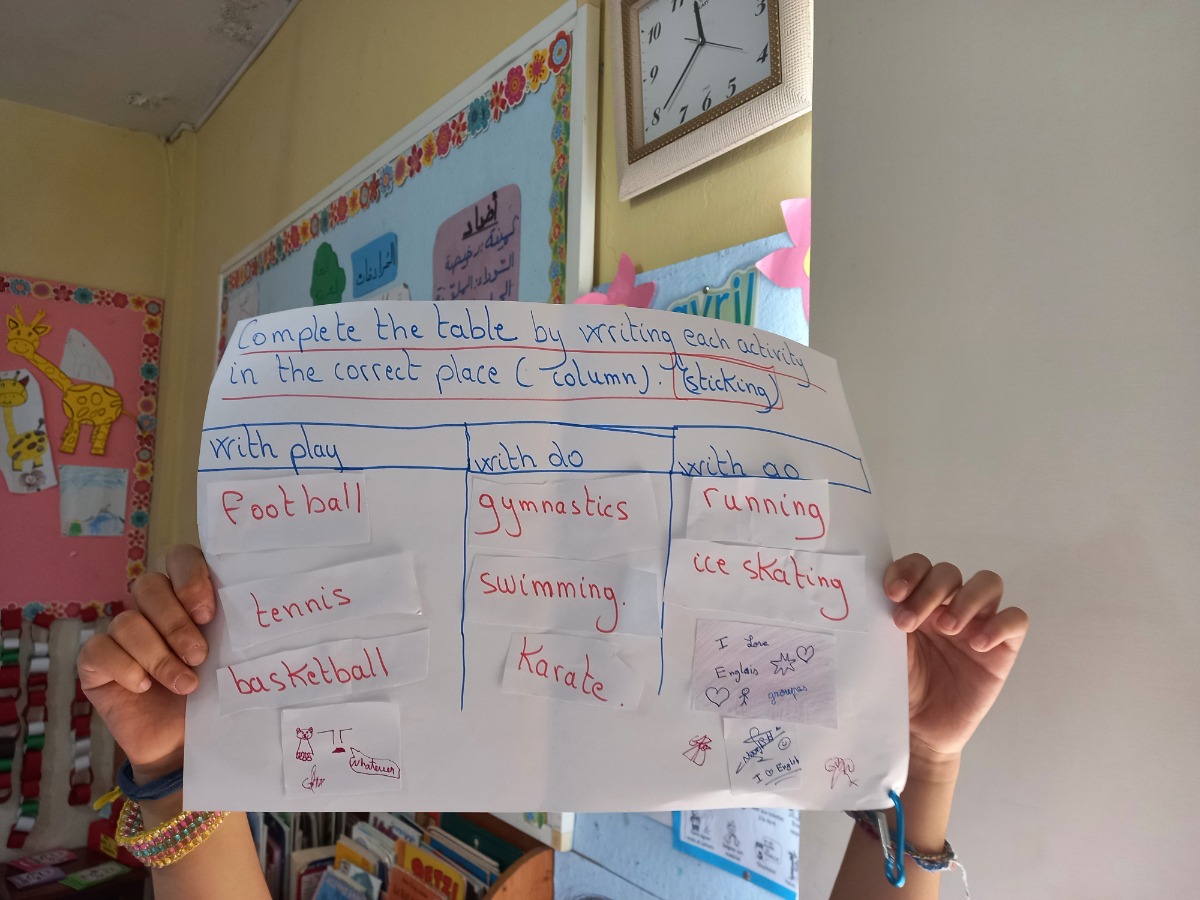 11
3
10
4
9
5
8
7
6
أضداد
المرادفات
avril
Complete the table by writing each activity
in the correct place (column). (sticking)
with play
with do
with go
football
gymnastics
running
tennis
swimming.
ice skating
basketball
Karate.
I Love
Englais
groupes
Whatever
I ♡ English